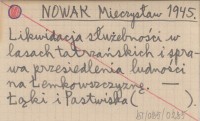 NOWAK Mieczysław 1945.
Likwidacja służebności w
lasach tatrzańskich i spra-
wa przesiedlenia ludności
na Łemkowszczyznę. —
Łąki i Pastwiska ( ).